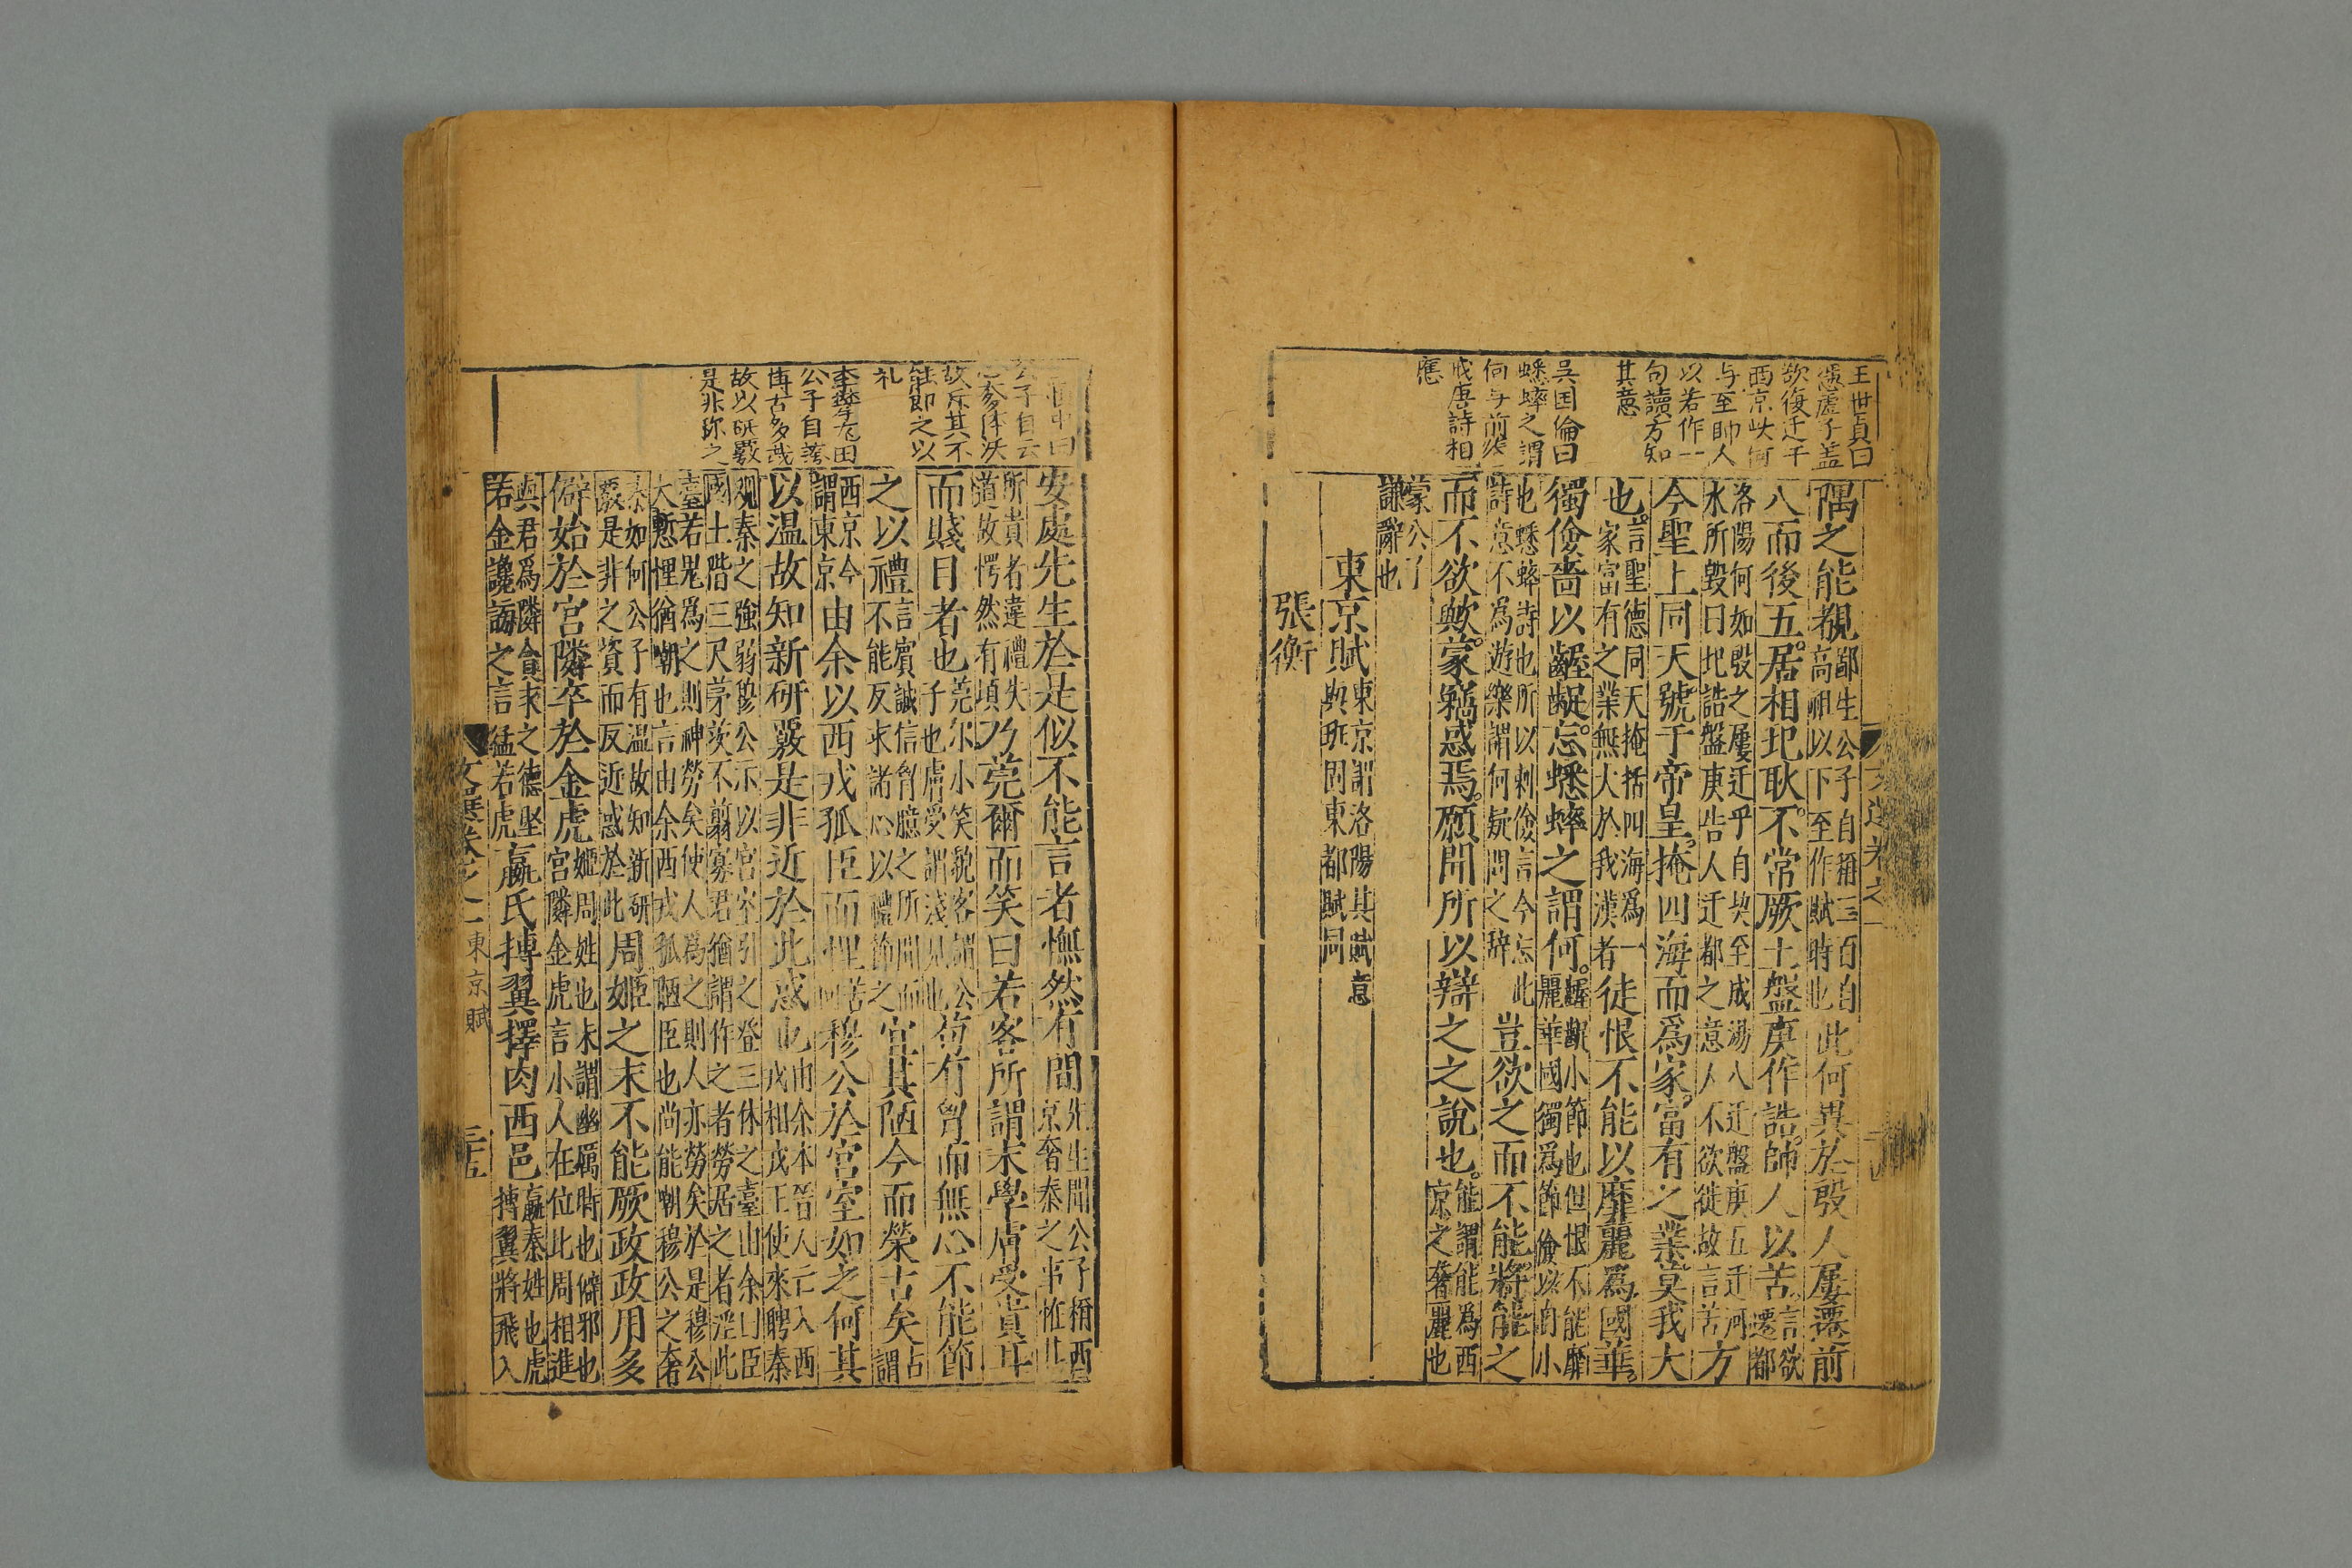 王世貞曰
憑虛子蓋
欲復迁于
西京故何
与至即人
以若作一
句讀方知
其意
吳囯倫曰
蟋蟀之謂
何与前然
戒唐詩相
應
隅之能覩鄙生公子自稱三百自
高祖以下至作賦時也此何異於殷人屢遷前
八而後五居相圯耿不常厥土盤庚作誥師人以苦言欲
遷都
洛陽何如殷之屢迁乎自契至成湯八迁盤庚五迁河
水所毀曰圯誥盤庚告人迁都之意人不欲徙故言苦方
今聖上同天號于帝皇掩四海而爲家富有之業莫我大
也言聖德同天掩括四海爲一
家富有之業無大於我漢者徒恨不能以靡麗爲國華
獨儉嗇以齷齪忘蟋蟀之謂何齷齪小節也但恨不能靡
麗華國獨爲節儉以自小
也蟋蟀詩也所以刺儉言今忘此
詩意不爲遊樂謂何疑問之辞豈欲之而不能將能之
而不欲歟蒙竊惑焉願聞所以辯之之說也能謂能爲西
京之奢麗也
蒙公子
謙辭也
東京賦東京謂洛陽其賦意
與班固東都賦同
張衡
安處先生於是似不能言者憮然有間先生聞公子稱西
京奢泰之事惟其
所貴者違禮失
道故愕然有頃乃莞爾而笑曰若客所謂末學膚受貴耳
而賤目者也莞尔小笑貌客謂公
子也膚受謂淺見也苟有胷而無心不能節
之以禮言賓誠信胷臆之所聞而
不能反求諸心以禮節之宜其陋今而榮古矣古
謂
西京今
謂東京由余以西戎孤臣而悝苦
回穆公於宮室如之何其
以温故知新研覈是非近於此惑也由余本晉人亡入西
戎相戎王使來聘秦
观秦之強弱繆公示以宮室引之登三休之臺山余曰臣
國土階三尺茅茨不翦寡君猶謂作之者勞居之者淫此
臺若鬼爲之則神勞矣使人爲之則人亦勞矣於是穆公
大慙悝猶嘲也言由余西戎孤陋臣也尚能嘲穆公之奢
泰如何公子有温故知新研
覈是非之資而反近惑於此周姬之末不能厥政政用多
僻始於宮隣卒於金虎姬周姓也末謂幽厲時也僻邪也
宮隣金虎言小人在位此周相進
與君爲隣貪求之德坚
若金讒謗之言猛若虎嬴氏搏翼擇肉西邑嬴秦姓也虎
搏翼將飛入
公子自云
故斥其不
能即之以
礼
公子自誇
博古多哉
故以研覈
是非称之
東京賦
三五